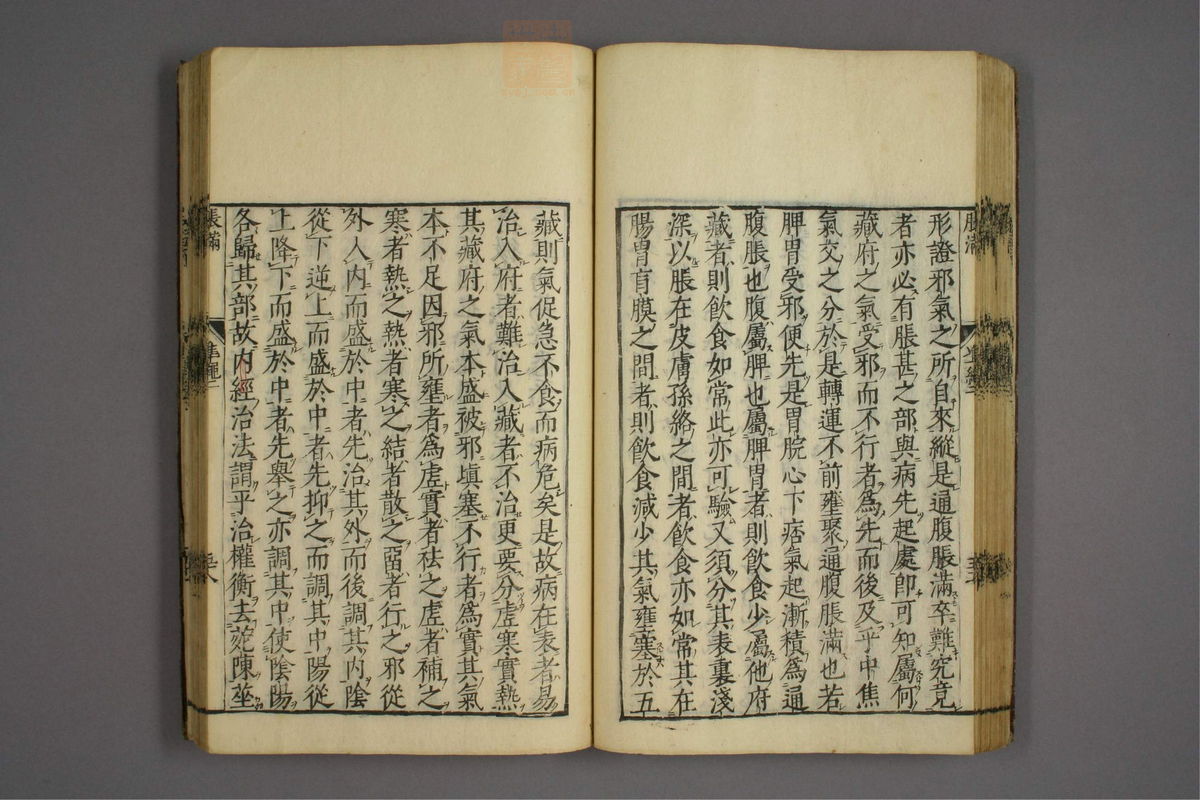 形證邪氣之所自來縱是通腹脹滿卒難究竟
者亦必有脹甚之部與病先起處卽可知屬何
藏府之氣受邪而不行者爲先而後及乎中焦
氣交之分於是轉運不前壅聚通腹脹滿也若
脾胃受邪便先是胃脘心下痞氣起漸積爲通
腹脹也腹屬脾也屬脾胃者則飲食少屬他府
藏者則飲食如常此亦可驗又須分其表裏淺
深以脹在皮膚孫絡之間者飲食亦如常其在
腸胃肓膜之間者則飲食減少其氣壅塞於五
藏則氣促急不食而病危矣是故病在表者易
治入府者難治入藏者不治更要分虛寒實熱
其藏府之氣本盛被邪塡塞不行者爲實其氣
本不足因邪所壅者爲虛實者祛之虛者補之
寒者熱之熱者寒之結者散之留者行之邪從
外入內而盛於中者先治其外而後調其內陰
從下逆上而盛於中者先抑之而調其中陽從
上降下而盛於中者先舉之亦調其中使陰陽
各歸其部故內經治法謂平治權衡去菀陳莝
脹滿
準繩二